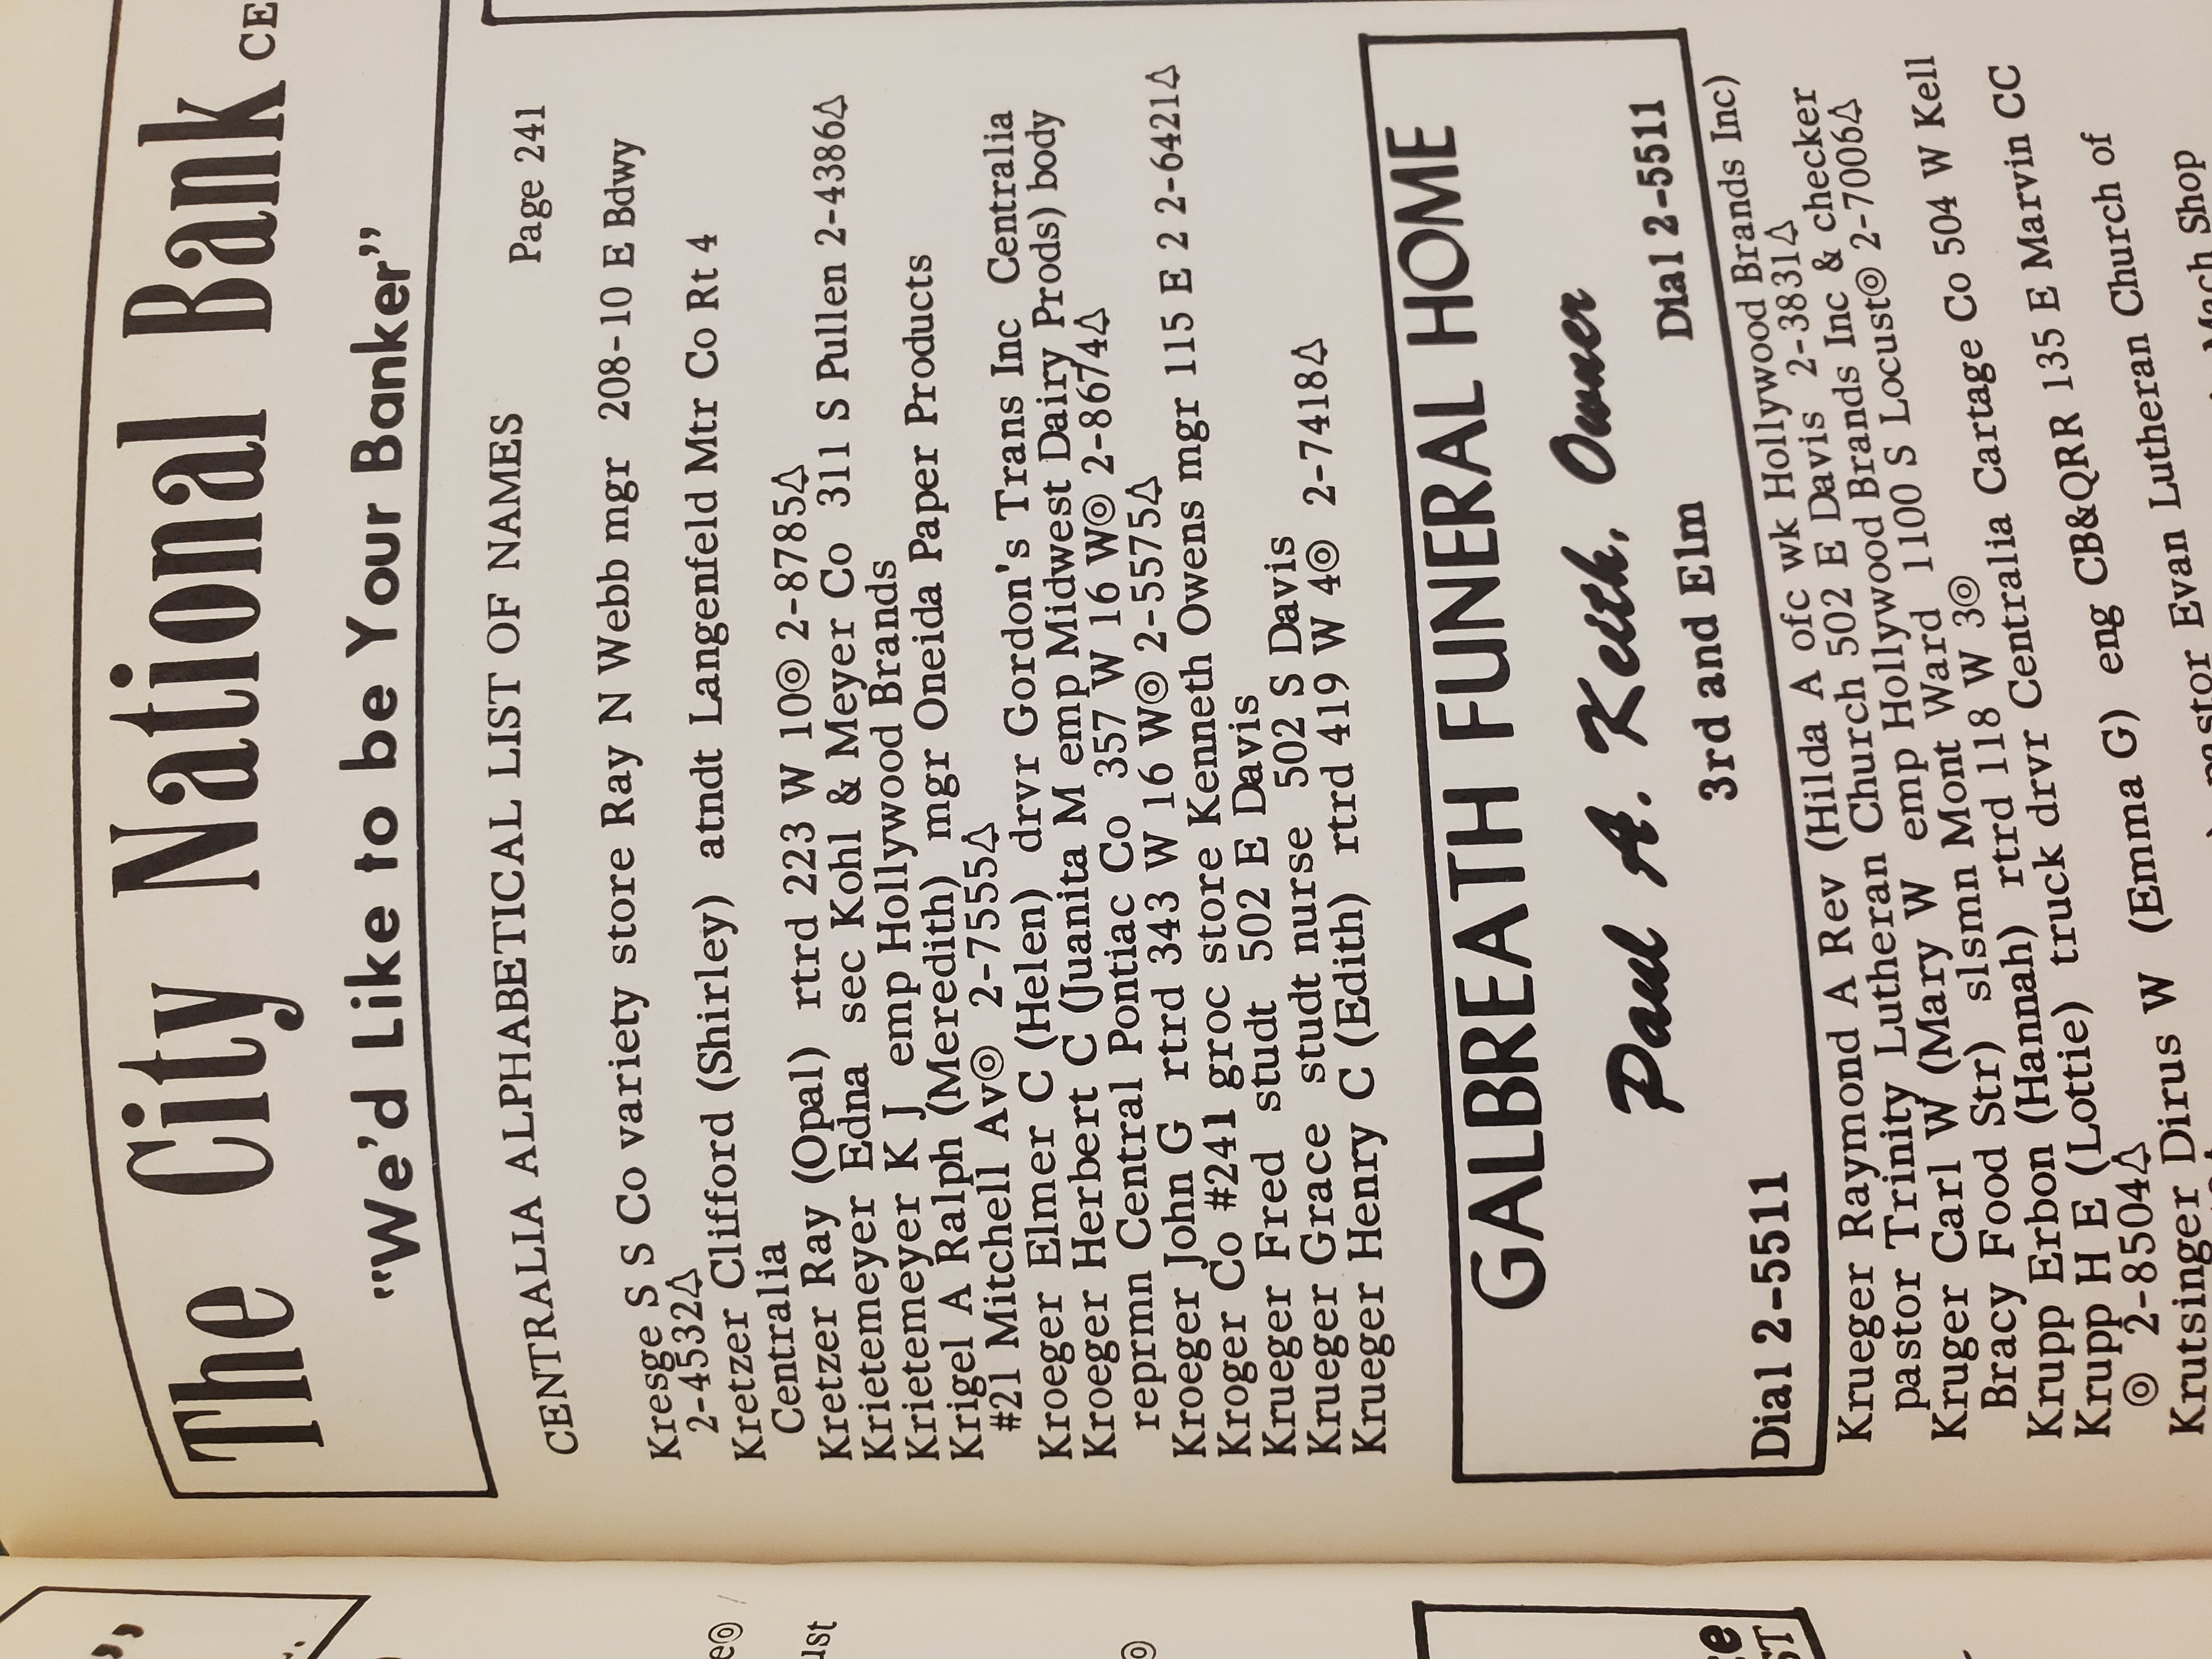 The City National Bank CE
"We'd Like to be Your Banker"
CENTRALIA ALPHABETICAL LIST OF NAMES Page 241
Kresge S S Co variety store Ray N Webb mgr 208-10 E Bdwy
2-4532△
Kretzer Clifford (Shirley) atndt Langenfeld Mtr Co Rt 4
Centralia
Kretzer Ray (Opal) rtrd 223 W 10◎ 2-8785△
Krietemeyer Edna sec Kohl & Meyer Co 311 S Pullen 2-4386△
Krietemeyer K J emp Hollywood Brands
Krigel A Ralph (Meredith) mgr Oneida Paper Products
#21 Mitchell Av◎ 2-7555△
Kroeger Elmer C (Helen) drvr Gordon's Trans Inc Centralia
Kroeger Herbert C (Juanita M emp Midwest Dairy Prods) body
reprmn Central Pontiac Co 357 W 16 W◎ 2-8674△
Kroeger John G rtrd 343 W 16 W◎ 2-5575△
Kroger Co #241 groc store Kenneth Owens mgr 115 E 2 2-6421△
Krueger Fred studt 502 E Davis
Krueger Grace studt nurse 502 S Davis
Krueger Henry C (Edith) rtrd 419 W 4◎ 2-7418△
GALBREATH FUNERAL HOME
Paul A. Keith, Owner
Dial 2-5511 3rd and Elm Dial 2-5511
Krueger Raymond A Rev (Hilda A ofc wk Hollywood Brands Inc)
pastor Trinity Lutheran Church 502 E Davis 2-3831△
Kruger Carl W (Mary W emp Hollywood Brands Inc & checker
Bracy Food Str) slsmn Mont Ward 1100 S Locust◎ 2-7006△
Krupp Erbon (Hannah) rtrd 118 W 3◎
Krupp H E (Lottie) truck drvr Centralia Cartage Co 504 W Kell
◎ 2-8504△
Krutsinger Dirus W (Emma G) eng CB&QRR 135 E Marvin CC
pastor Evan Lutheran Church of
Mach Shop
e◎
ust
◎